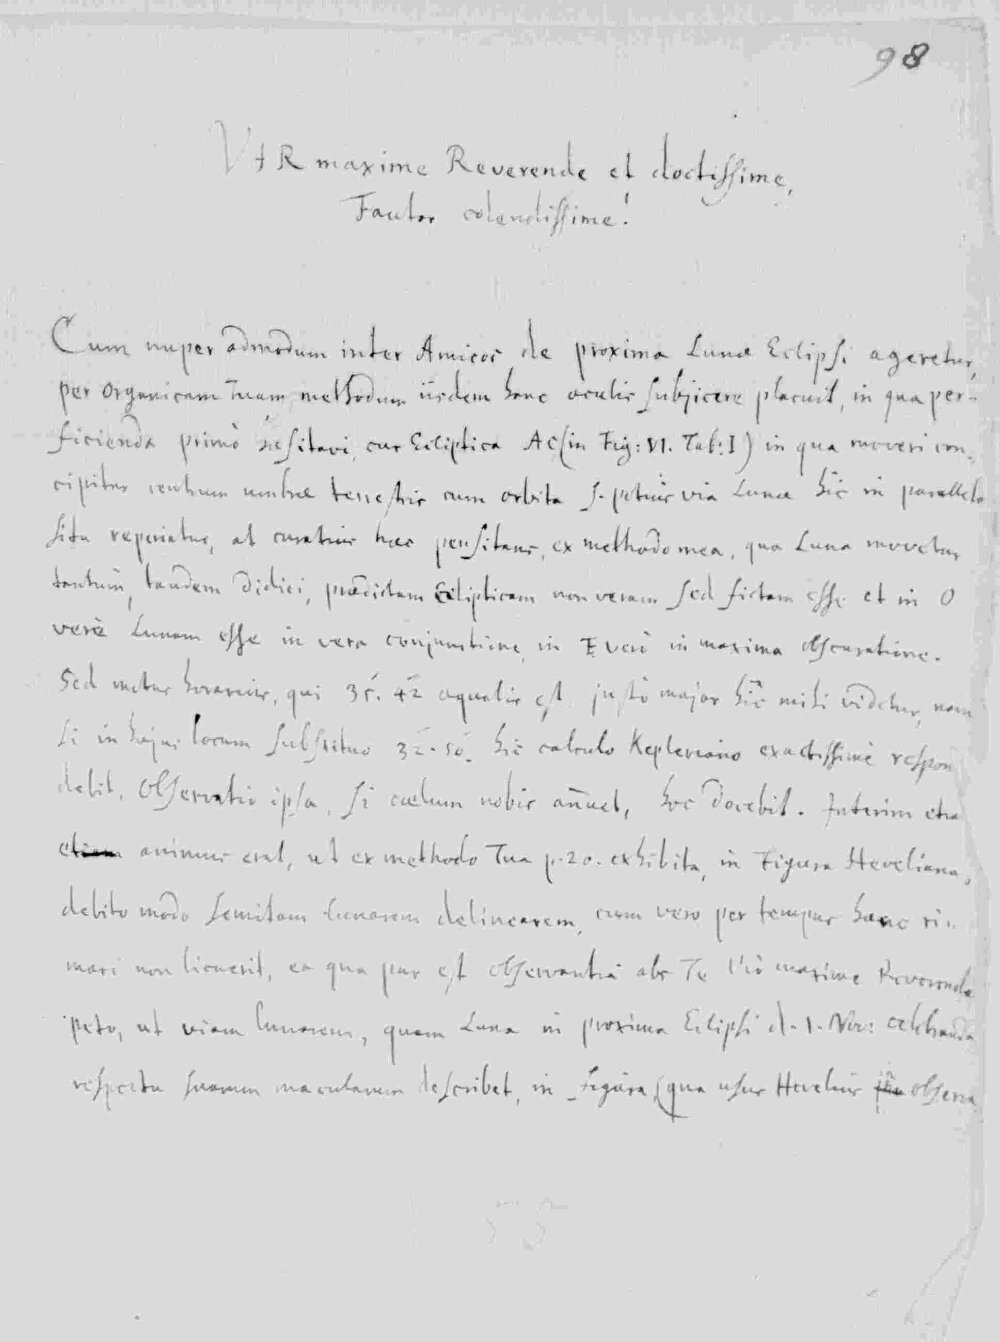 98
VIR maxime Reverende et doctissime,
Fautor colendissime!
Cum nuper admodum inter Amicos de proxima Lunæ Eclipsi ageretur,
per Organicam Tuam methodum iisdem hanc oculis subjicere placuit, in qua per-
ficienda primò hæsitavi, cur Ecliptica AC (in Fig: VI. Tab: I) in qua moveri con-
cipitur centrum umbræ terrestris cum orbita s. potius via Lunæ hîc in parallelo
situ reperiatur, at curatius hæc pensitans, ex methodo mea, qua Luna movetur
tantum, tandem didici, prædictam Eclipticam non veram sed fictam esse et in O
verè Lunam esse in vera conjunctione, in F verò in maxima obscuratione.
Sed motus horarius, qui 35. 42 æqualis est justò major hîc mihi videtur, nam
si in hujus locum substituo 32. 50. hîc calculo Kepleriano exactissimè respon
debit. Observatio ipsa, si cœlum nobis añuet, hoc docebit. Interim etia
etiam animus erat, ut ex methodo Tua p. 20. exhibita, in Figura Heveliana,
debito modo semitam lunarem delinearem, cum vero per tempus hanc ri-
mari non licuerit, ea qua par est observantiâ abs Te Vir maxime Reverende
peto, ut viam lunarem, quam Luna in proxima Eclipsi d. 1. Nov: celebranda
respectu suarum macularum describet, in figura (qua usus Hevelius observa